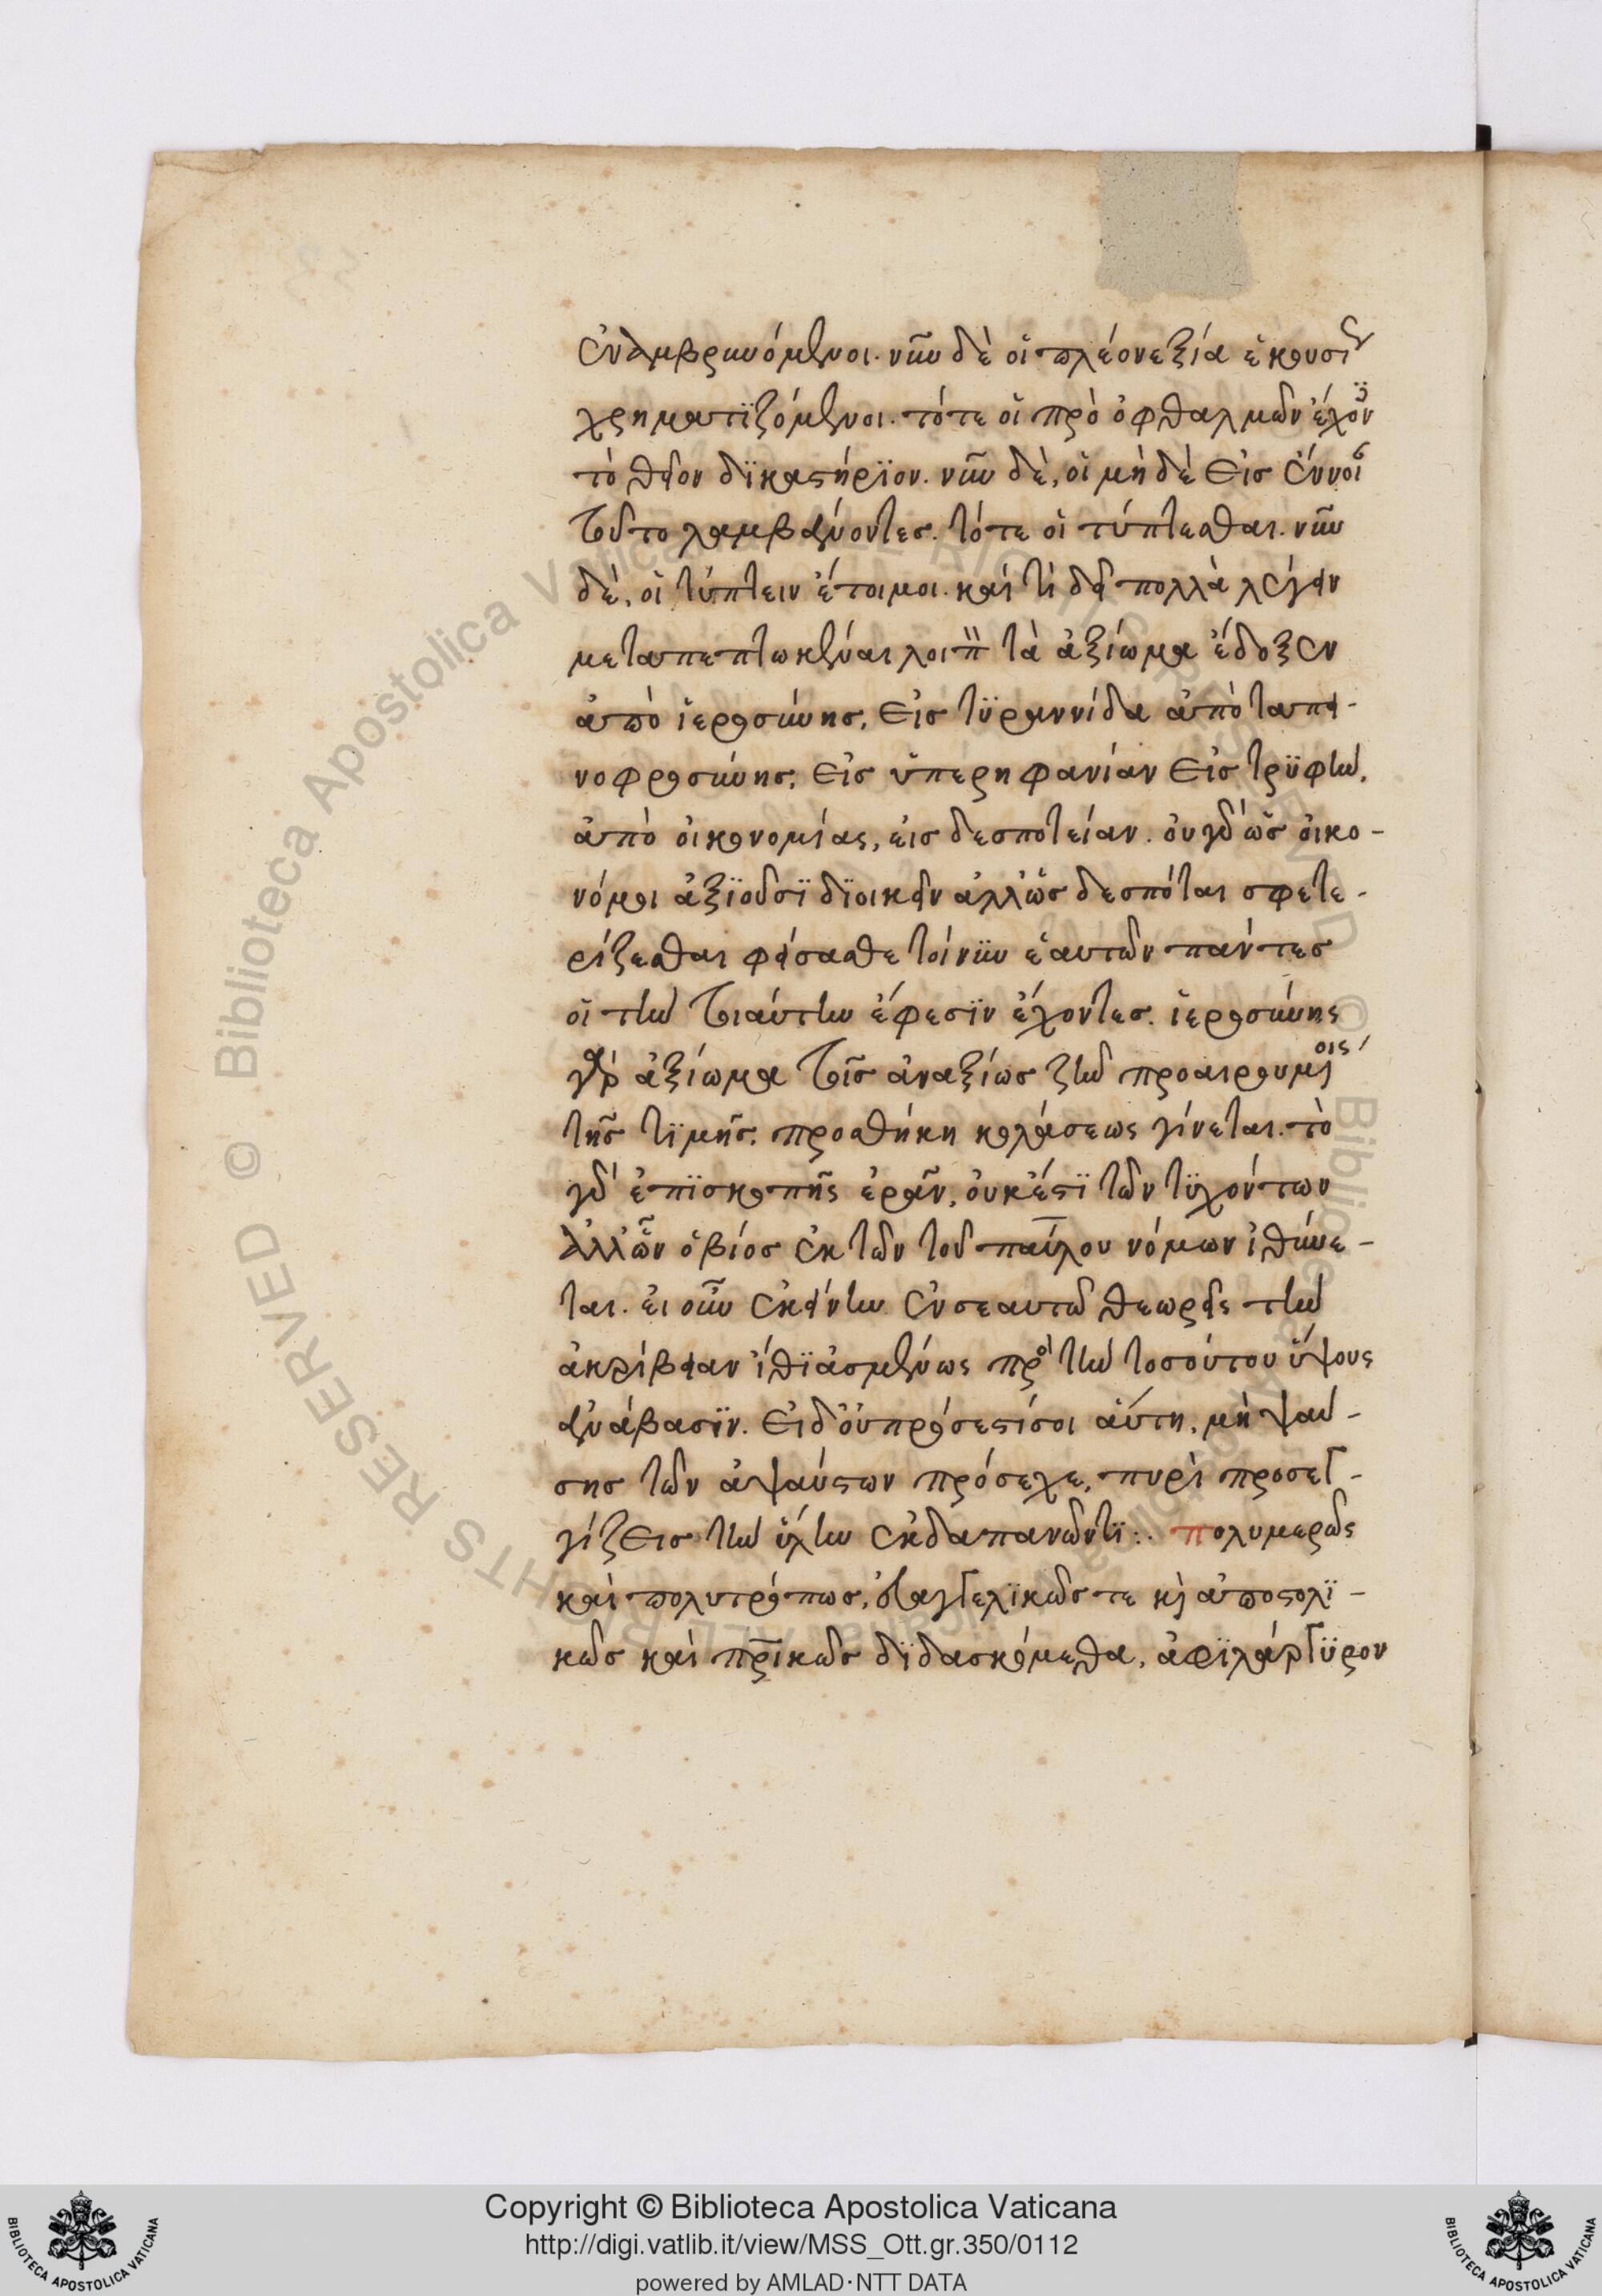 ἐναμβρυνόμενοι. νῦν δὲ οἱ πλεονεξία ἑκουσίω
χρηματϊζόμενοι. τότε οἱ πρὸ ὀφθαλμῶν ἔχον
τὸ θεῖον δϊκαστήρϊον. νῦν δὲ, οἱ μὴ δὲ εἰσ ἔννοι
τοῦτο λαμβάνοντες. τότε οἱ τύπτεσθαι. νῦν
δὲ, οἱ τύπτειν ἕτοιμοι. καὶ τί δεῖ πολλὰ λέγειν
μεταπεπτωκέναι λοιπ τὰ ἀξίωμα ἔδοξεν
ἀπὸ ἱερωσύνησ, εἰσ τϋραννίδα ἀπὸ ταπει-
νοφροσύνησ, εἰσ ὑπερηφανίαν εἰσ τρϋφὴν,
ἀπὸ οἰκονομίας, εἰσ δεσποτείαν. οὐ γὰρ ὡσ οἰκο-
νόμοι ἀξϊοῦσϊ δϊοικεῖν ἀλλ' ὡσ δεσπόται σφετε-
ρίζεσθαι φείσασθε τοίνϋν ἑαυτῶν πάντεσ
οἱ τὴν τοιαύτην ἔφεσϊν ἔχοντεσ. ἱερωσύνης
γὰρ ἀξίωμα τοῖσ ἀναξίωσ ζῆν προαιρουμένοις
τῆσ τϊμῆσ. προσθήκη κολάσεως γίνεται. τὸ
γὰρ ἐπϊσκοπῆς ἐρᾶν, οὐκ ἔστϊ τῶν τϋχόντων
ἀλλ' ὧν ὁ βίοσ ἐκ τῶν τοῦ παύλου νόμων ἰθύνε-
ται. εἰ οὖν ἐκείνην ἐν σεαυτῶ θεωρεῖς τὴν
ἀκρίβειαν ἴθϊ ἀσμένως πρὸ τὴν τοσούτου ὕψους
ἀνάβασϊν. εἰ δ' οὐ πρόσεστί σοι αὕτη, μὴ ψαύ-
σησ τῶν ἀψαύστων πρόσεχε, πυρὶ προσεγ-
γίζεισ τὴν ὕλην ἐκδαπανῶντϊ:. πολυμερῶς
καὶ πολυτρόπωσ, εὐαγγελϊκῶσ τε κὶ ἀποστολϊ-
κῶσ καὶ πρϊκῶσ δϊδασκόμεθα, ἀφϊλάργϋρον